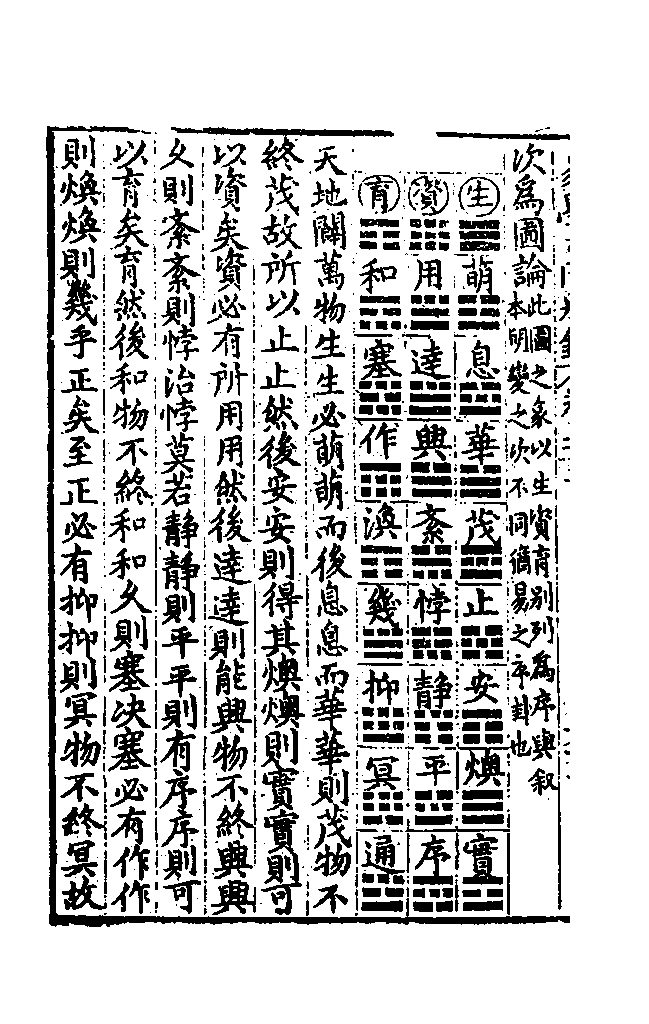 次為圖論
此圖之象以生資育別列為序與叙
本明變之次不同易之序卦也
生萌息華茂止安燠實
資用達興紊悖靜平序
育和塞作渙幾抑冥通
天地闢萬物生生必萌萌而後息息而華華則茂物不
終茂故所以止止然後安安則得其燠燠則實實則可
以資矣資必有所用用然後達達則能興物不終興興
乆則紊紊則悖治悖莫若靜靜則平平則有序序則可
以育矣育然後和物不終和和乆則塞决塞必有作作
則煥煥則幾乎正矣至正必有抑抑則冥物不終冥故